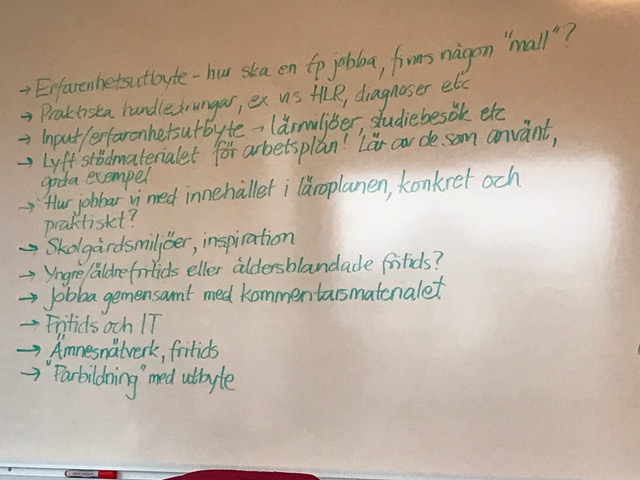 → Erfarenhetsutbyte - hur ska en fp jobba, finns någon "mall"?
→ Praktiska handledningar, ex vis HLR, diagnoser etc
→ Input/erfarenhetsutbyte → lärmiljöer, studiebesök etc
→ Lyft stödmaterialet för arbetsplan! Lär av de som använt,
goda exempel
→ Hur jobbar vi med innehållet i läroplanen, konkret och
praktiskt?
→ Skolgårdsmiljöer, inspiration
→ Yngre/äldrefritids eller åldersblandade fritids?
→ Jobba gemensamt med kommentarsmaterialet
→ Fritids och IT
→ Ämnesnätverk, fritids
→ "Parbildning" med utbyte